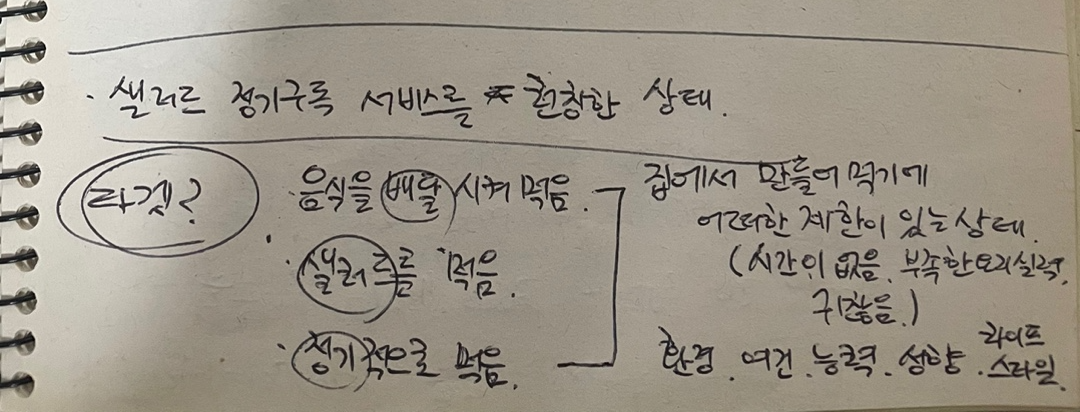 · 샐러드 정기구독 서비스를 런칭한 상태.
타겟?
· 음식을 배달 시켜 먹음.
· 샐러드를 먹음.
· 정기적으로 먹음.
집에서 만들어 먹기에
어떠한 제한이 있는 상태.
(시간이 없음. 부족한 요리실력,
귀찮음.)
환경. 여건. 능력. 성향. 라이프
스타일.